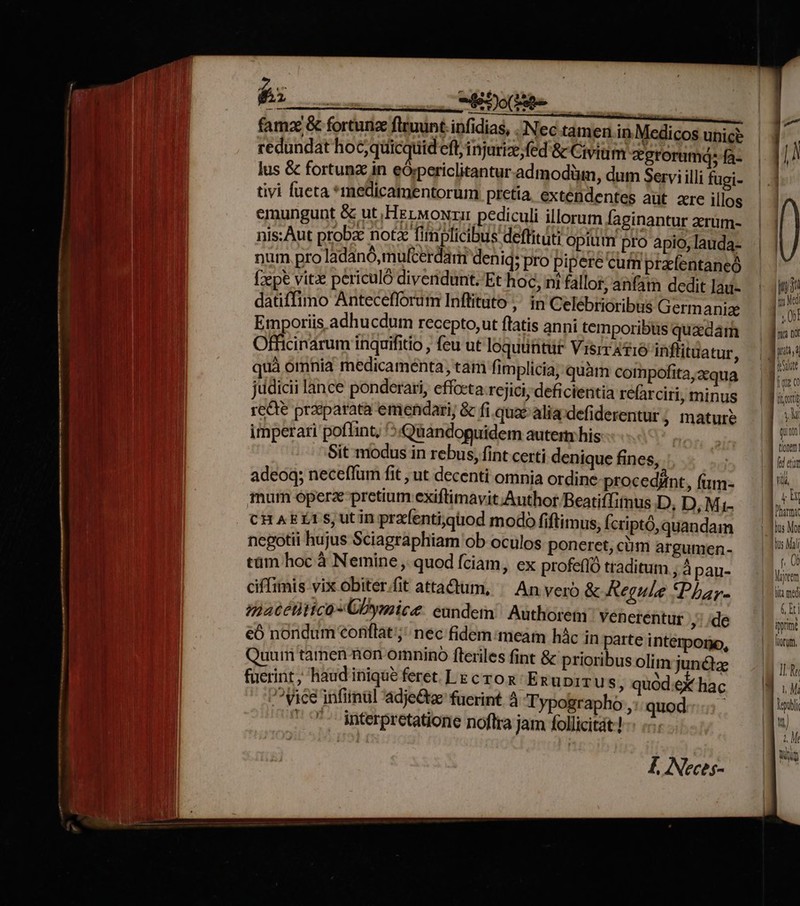 famæ & fortunæ ſtruunt inſidias, Nec tamen in Medicos unicè
redundat hoc, quicquid eſt, injuriæ, ſed & Civium ægrorumq́; ſa-
lus & fortunæ in eó periclitantur admodùm, dum Servi illi fugi-
tivi ſueta medicamentorum pretia extendentes aut ære illos
emungunt & ut HERMONTII pediculi illorum ſaginantur ærum-
nis: Aut probæ notæ ſimplicibus deſtituti opium pro apio, lauda-
num pro ladanô, muſcerdam deniq; pro pipere cum præſentaneô
ſæpè vitæ periculô divendunt. Et hoc, ni fallor, anſam dedit lau-
datiſſimo Anteceſſorum Inſtituto, in Celebrioribus Germaniæ
Emporiis adhucdum recepto, ut ſtatis anni temporibus quædam
Officinarum inquiſitio, ſeu ut loquuntur VISITATIO inſtituatur,
quâ omnia medicamenta, tam ſimplicia, quàm compoſita, æqua
judicii lance ponderari, effœta rejici, deficientia reſarciri, minus
rectè præparata emendari, & ſi quæ alia deſiderentur, maturè
imperari poſſint, Quandoquidem autem his
Sit modus in rebus, ſint certi denique fines,
adeoq; neceſſum ſit, ut decenti omnia ordine procedant, ſum-
mum operæ pretium exiſtimavit Author Beatiſſimus D. D. MI-
CHAELIS, ut in præſenti, quod modo ſiſtimus, ſcriptô, quandam
negotii hujus Sciagraphiam ob oculos poneret, cùm argumen-
tum hoc à Nemine, quod ſciam, ex profeſſô traditum, à pau-
ciſſimis vix obiter ſit attactum, An verò & Regulæ Phar-
maceutico-Chymicæ eundem Authorem venerentur, de
eô nondum conſtat; nec fidem meam hâc in parte interpono,
Quum tamen non omninò ſteriles ſint & prioribus olim junctæ
fuerint, haud iniquè feret LECTOR ERUDITUS, quòd ex hac
vice inſimul adjectæ fuerint à Typographo, quod
interpretatione noſtra jam ſollicitat!
I. Neces-